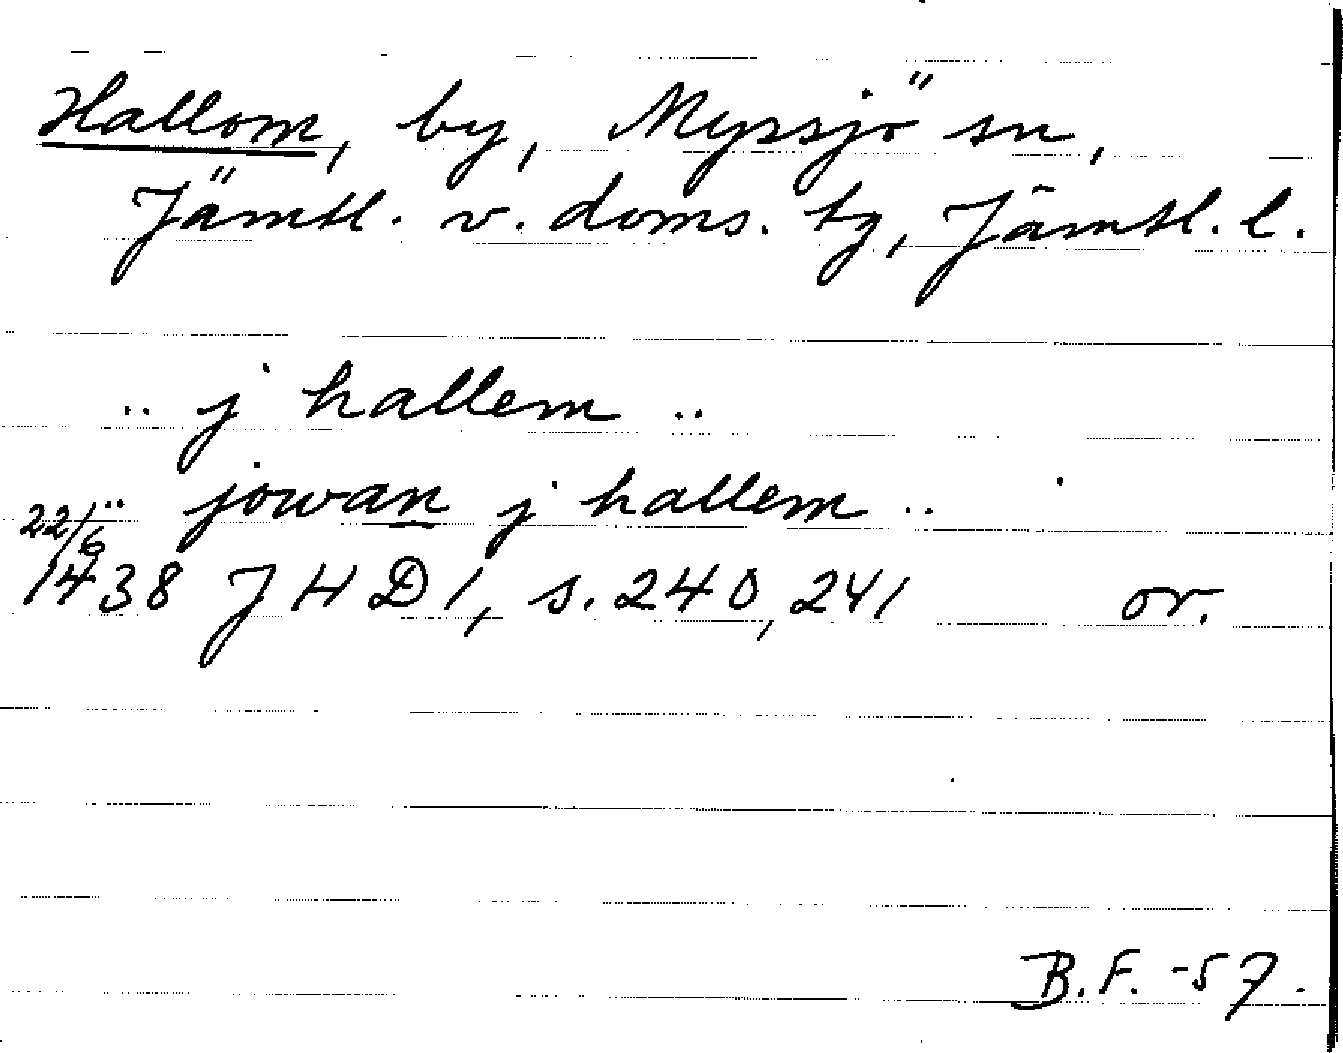 Hallom, by, Myssjö sn,
Jämtl. v. doms. tg, Jämtl. l.
.. j hallem ..
.. jowan j hallem ..
22/6
1438 JHD 1, s. 240, 241 or.
B.F. -57.